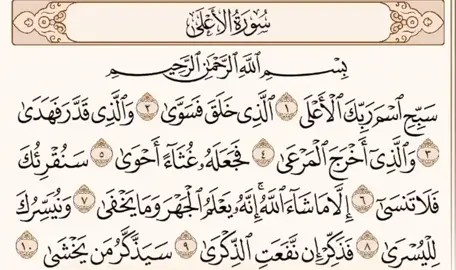 سُورَةُ الأَعْلَىٰ
بِسْمِ اللَّهِ الرَّحْمَٰنِ الرَّحِيمِ
سَبِّحِ اسْمَ رَبِّكَ الْأَعْلَى ١ الَّذِي خَلَقَ فَسَوَّىٰ ٢ وَالَّذِي قَدَّرَ فَهَدَىٰ
٣ وَالَّذِي أَخْرَجَ الْمَرْعَىٰ ٤ فَجَعَلَهُ غُثَاءً أَحْوَىٰ ٥ سَنُقْرِئُكَ
فَلَا تَنسَىٰ ٦ إِلَّا مَا شَاءَ اللَّهُ ۚ إِنَّهُ يَعْلَمُ الْجَهْرَ وَمَا يَخْفَىٰ ٧ وَنُيَسِّرُكَ
لِلْيُسْرَىٰ ٨ فَذَكِّرْ إِن نَّفَعَتِ الذِّكْرَىٰ ٩ سَيَذَّكَّرُ مَن يَخْشَىٰ ١٠